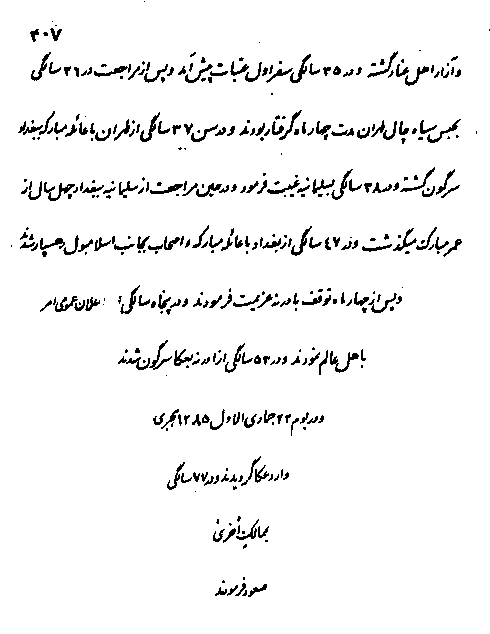 ۳۰۷
و آزار اهل عناد گشته و در ۳۵ سالگی سفر اول عتبات پیش آمد و پس از مراجعت در ۳۶ سالگی
بحبس سیاه چال طهران مدت چهار ماه گرفتار بودند و در سن ۳۷ سالگی از طهران با عائله مبارکه ببغداد
سرگون گشته و در ۳۸ سالگی بسلیمانیه غیبت فرمود و در حین مراجعت از سلیمانیه ببغداد چهل سال از
عمر مبارک میگذشت و در ٤٧ سالگی از بغداد با عائله مبارکه و اصحاب بجانب اسلامبول رهسپار شدند
و پس از چهار ماه توقف بادرنه عزیمت فرمودند و در پنجاه سالگی اعلان عمومی امر
باهل عالم نمودند و در ۵۳ سالگی از ادرنه بعکا سرگون شدند
و در یوم ۲۲ جمادی الاول ۱۲۸۵ هجری
وارد عکا گردیدند و در ۷۷ سالگی
بممالک اخری
صعود فرمودند